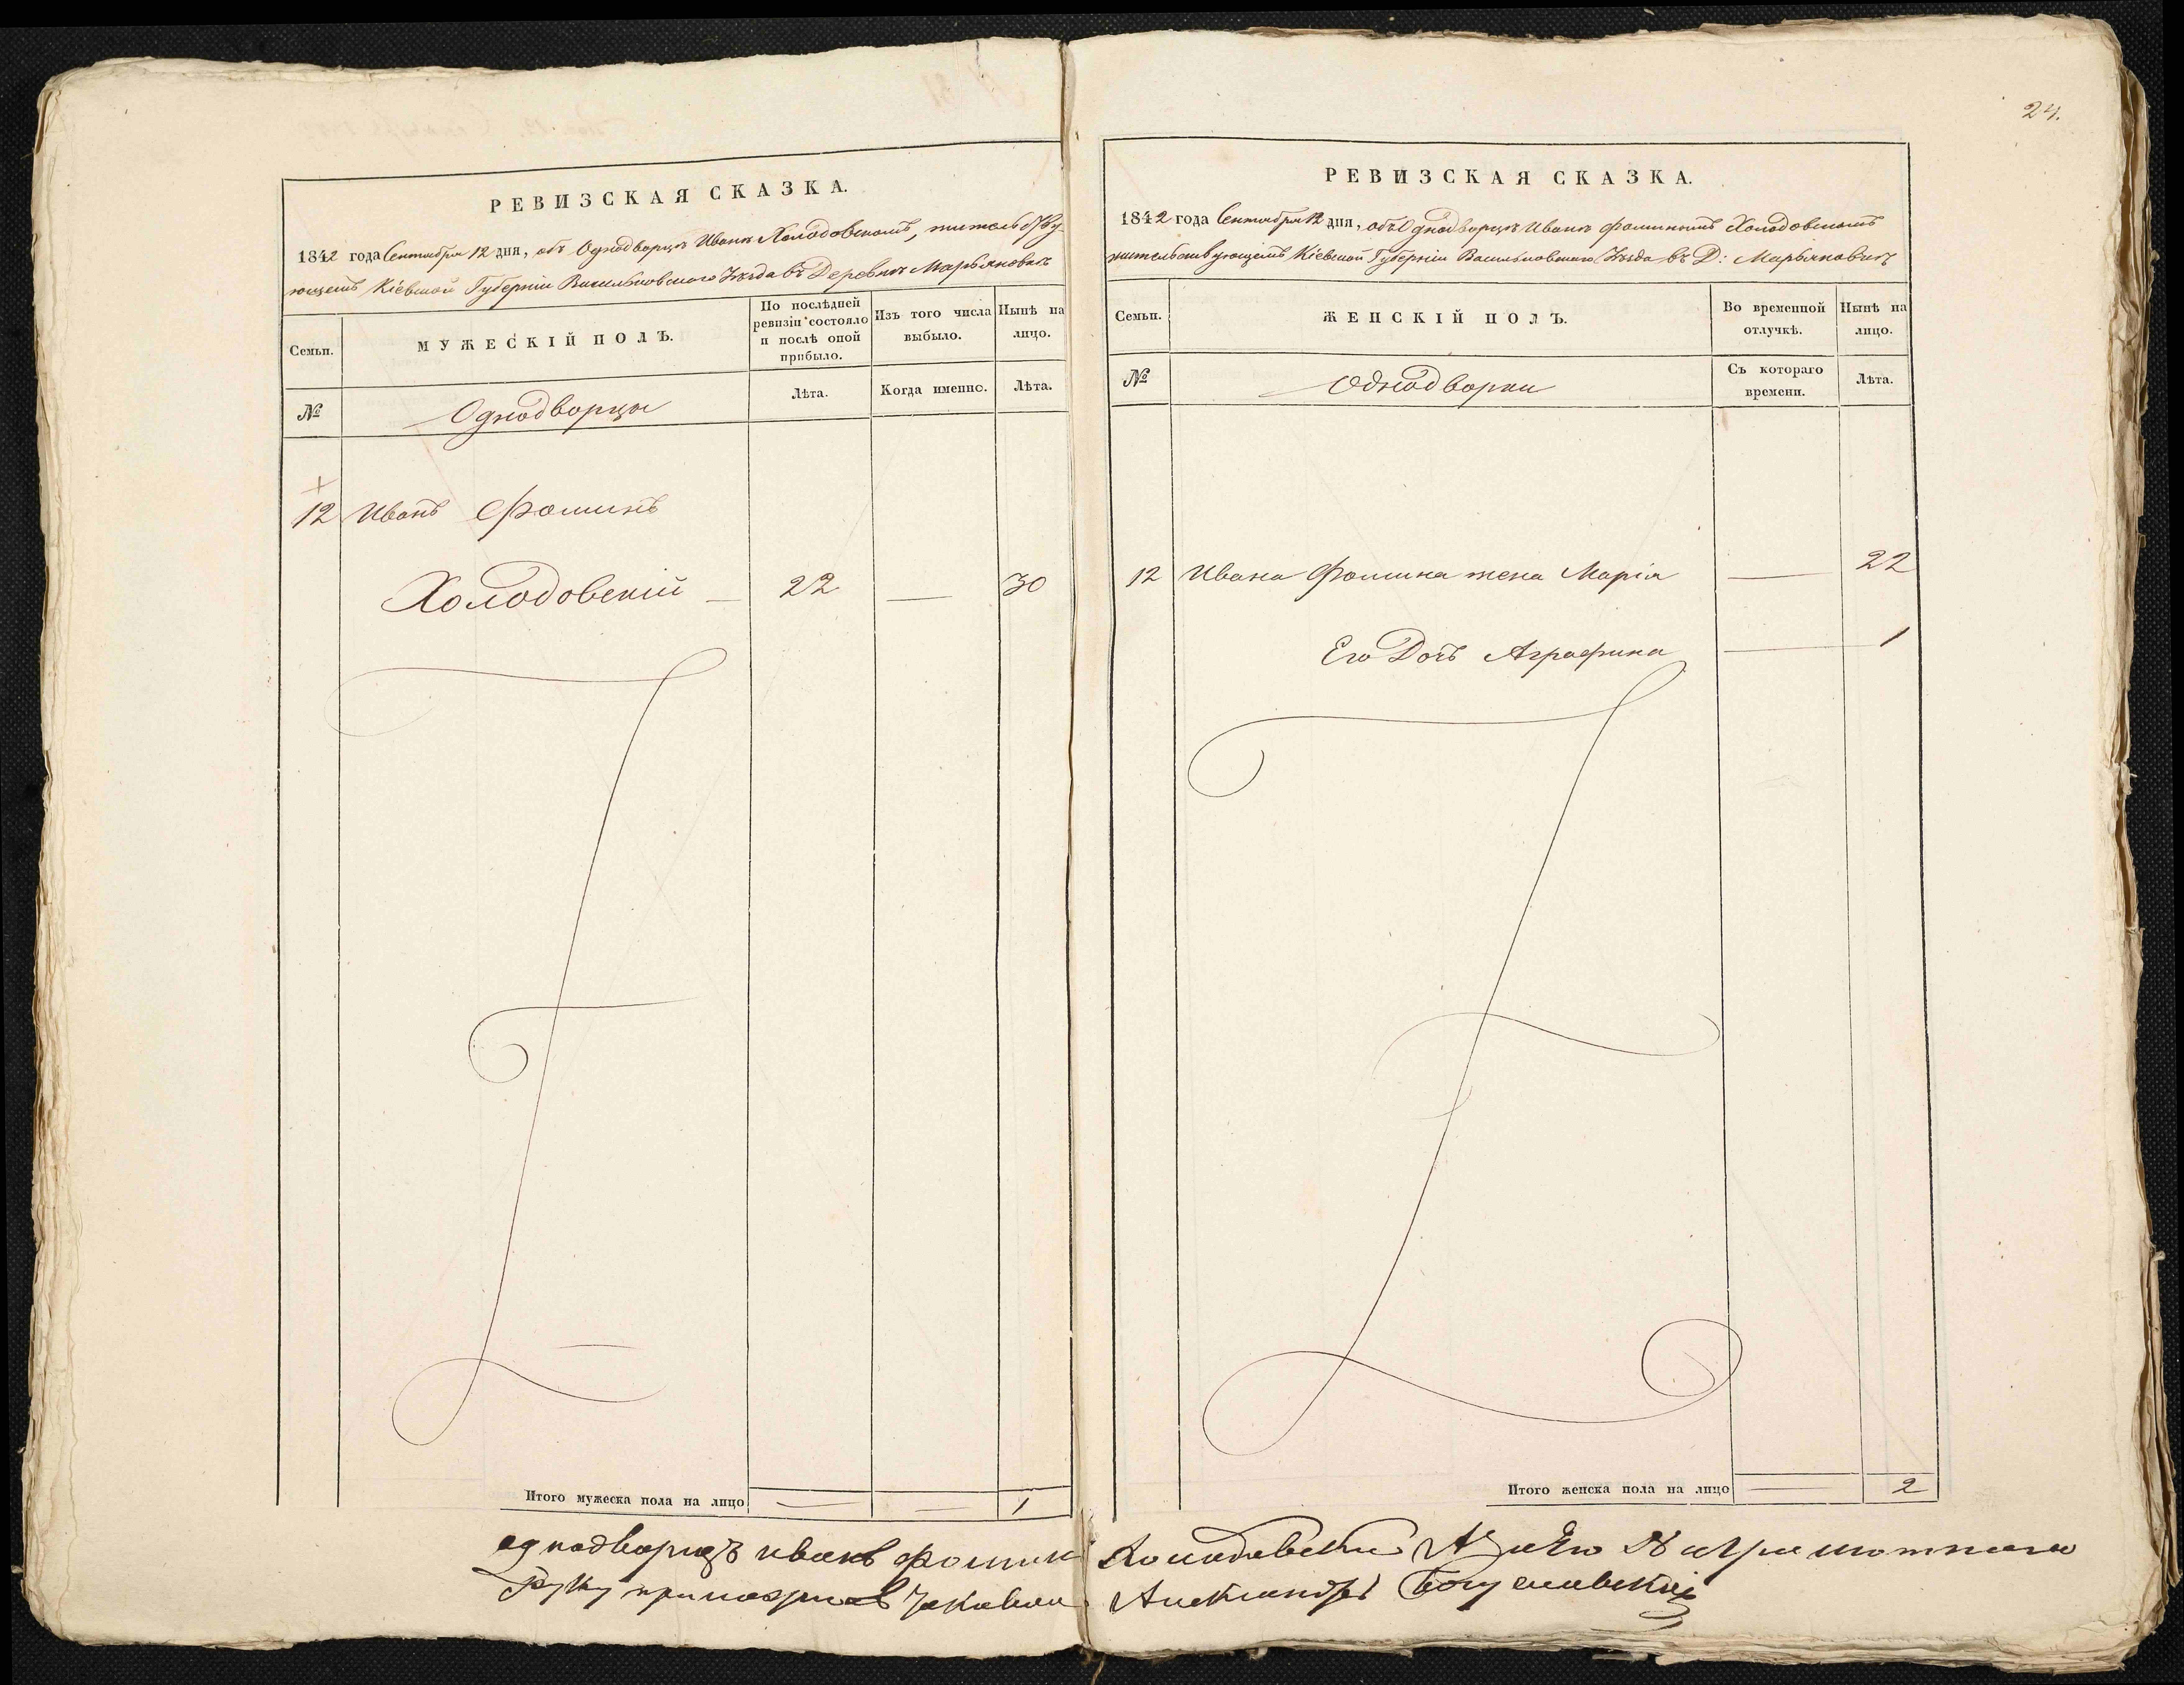 24.
РЕВИЗСКАЯ СКАЗКА.
1842 года Сентября 12 дня, объ Однодворцѣ Иванѣ Холодовскомъ, жительству-
ющемъ Кіевской Губерніи Васильковского Уѣзда въ Деревнѣ Марьяновкѣ
Семьи.
МУЖЕСКІЙ ПОЛЪ.
По послѣдней
ревизіи состояло
и послѣ оной
прибыло.
Изъ того числа
выбыло.
Нынѣ на
лицо.
№
Однодворцы
Лѣта.
Когда именно.
Лѣта.
12 Иванъ Фоминъ
Холодовскій — 22 — 30
Итого мужеска пола на лицо — — 1
РЕВИЗСКАЯ СКАЗКА.
1842 года Сентября 12 дня, объ Однодворцѣ Иванѣ Фоминомъ Холодовскомъ
жительствующемъ Кіевской Губерніи Васильковского Уѣзда въ Д: Марьяновкѣ
Семьи.
ЖЕНСКІЙ ПОЛЪ.
Во временной
отлучкѣ.
Нынѣ на
лицо.
№
Однодворки
Съ котораго
времени.
Лѣта.
12 Ивана Фомина жена Марія — 22
Его Дочь Аграфина — 1
Итого женска пола на лицо — 2
однодворецъ иванъ фомин Холодовский А за Его
Руку приложилъ Александръ Богуславский